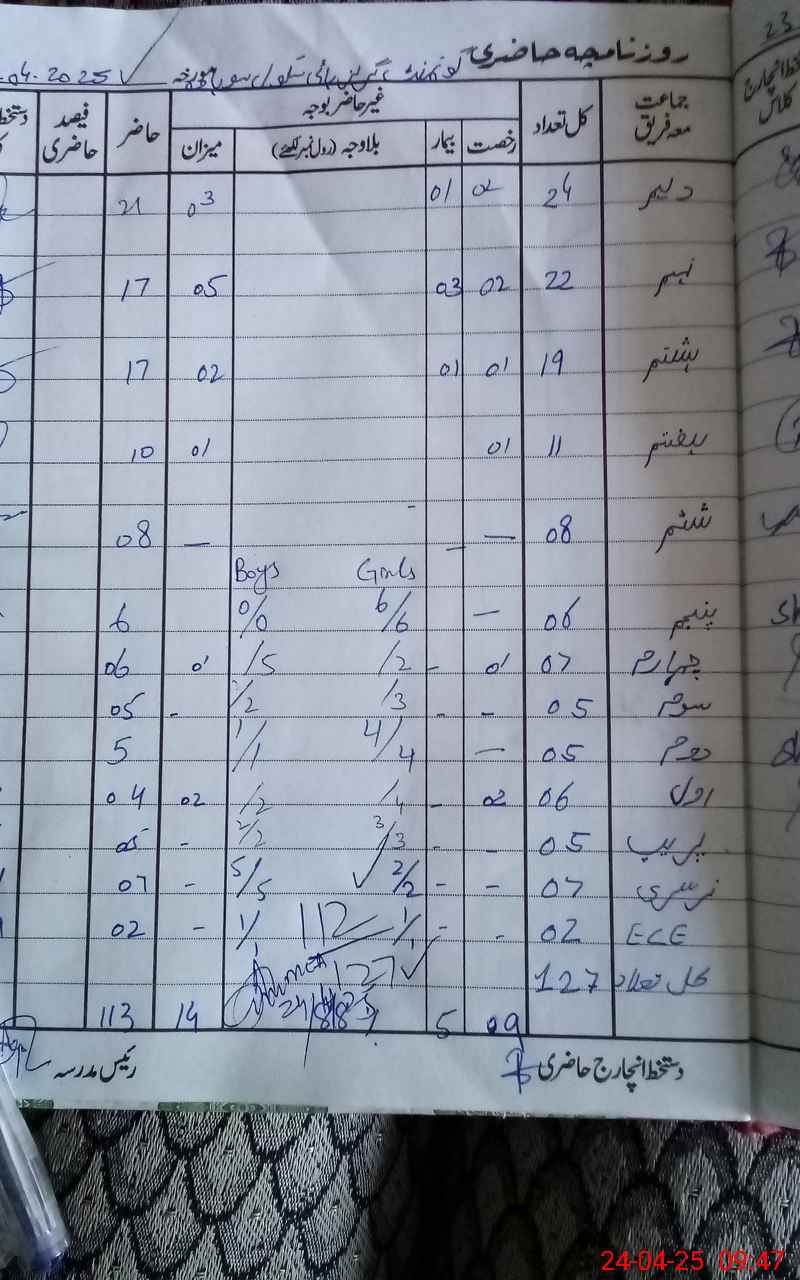 روزنامچہ حاضری گورنمنٹ گرلز ہائی سکول مورخہ .04.2025
جماعت معہ فریق کل تعداد غیر حاضر بوجہ حاضر فیصد حاضری
رخصت بیمار بلاوجہ (رول نمبر لکھئے) میزان
دہم 24 02 01 03 21
نہم 22 02 03 05 17
ہشتم 19 01 01 02 17
ہفتم 11 01 01 10
ششم 08 — – — 08
Girls Boys
پنجم 06 — 6/6 0/0 6
چہارم 07 01 - /2 /5 01 06
سوم 05 - - /3 /2 - 05
دوم 05 — 4/4 1/1 5
اول 06 02 - /4 /2 02 04
پریپ 05 - - 3/3 2/2 - 05
نرسری 07 - - 2/2 5/5 - 07
ECE 02 - - 1/1 1/1 - 02
112
کل تعداد 127 127
09 5 14 113
دستخط انچارج حاضری رئیس مدرسہ
23
دستخط انچارج کلاس
24-04-25 09:47